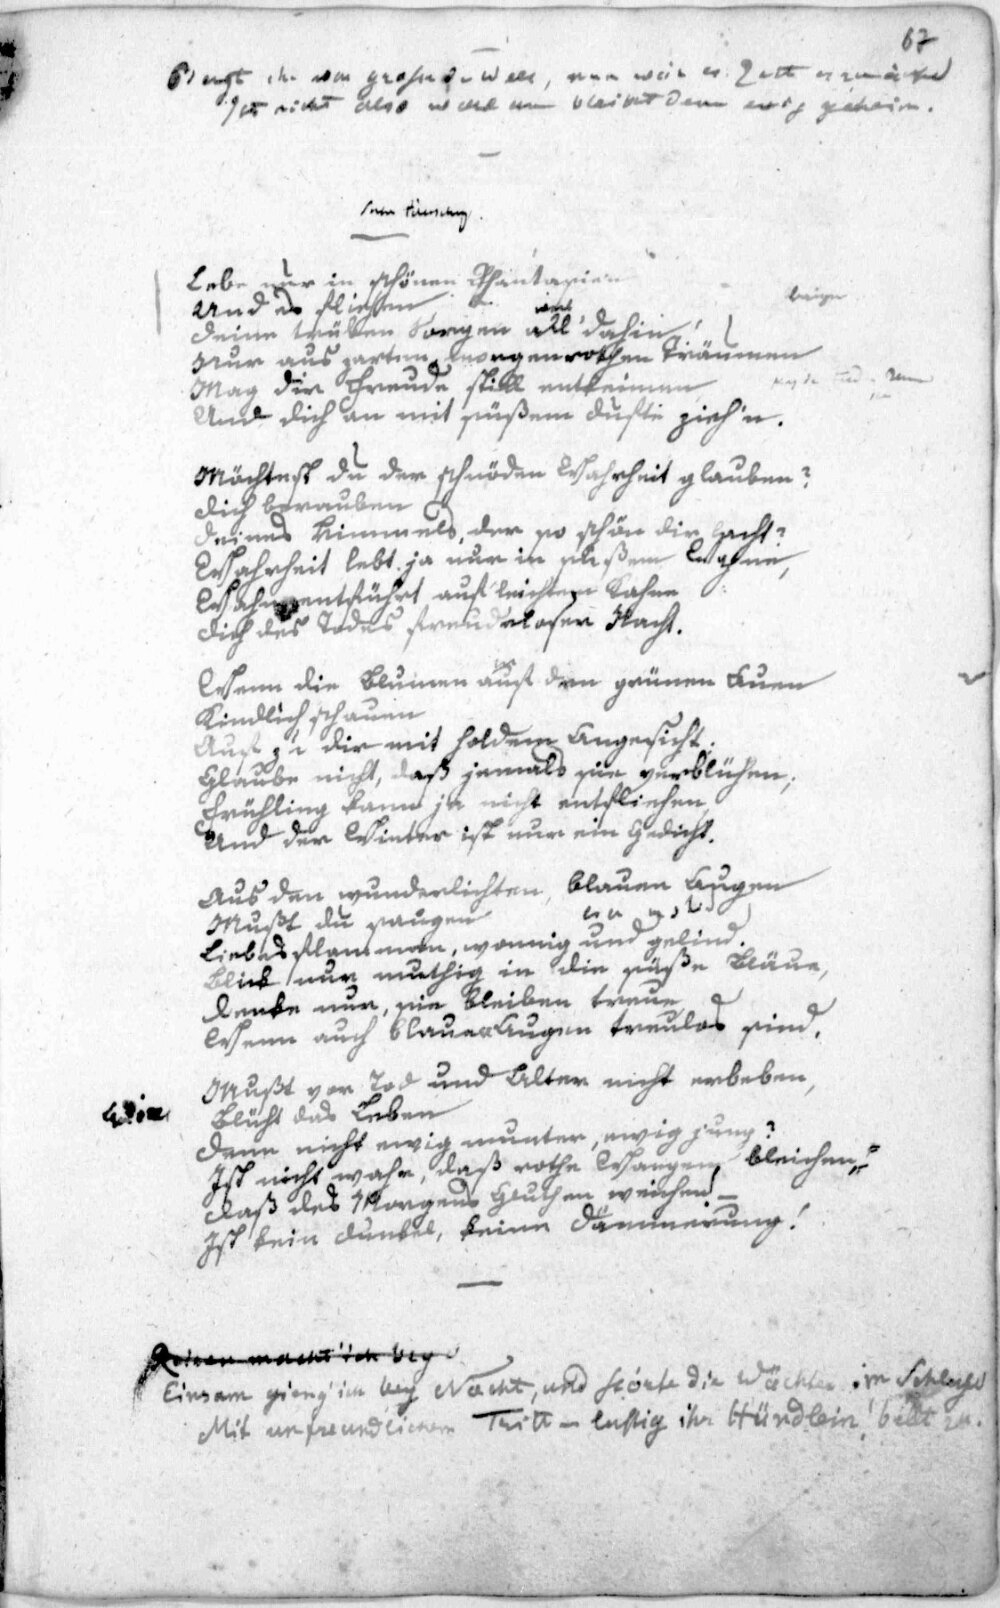 67
nicht also bleibt denn ewig geheim.
Lebe nur in schönen Phantasien
Und es fliehen
Deine trüben Sorgen all' dahin!
Nur aus zarten, morgenrothen Träumen
Mag dir Freude still entkeimen,
Und dich an mit süßem Dufte zieh'n.
Möchtest du der schnöden Wahrheit glauben?
Dich berauben
Deines Himmels, der so schön dir lacht?
Wahrheit lebt ja nur in süßem Wahne,
Wahn entführt auf leichtem Kahne
Dich des Todes freudeloser Nacht.
Wenn die Blumen auf den grünen Auen
Kindlich schauen
Auf zu dir mit holdem Angesicht,
Glaube nicht, daß jemals sie verblühen;
Frühling kann ja nicht entfliehen,
Und der Winter ist nur ein Gedicht.
Aus den wunderlichten, blauen Augen
Mußt du saugen
Liebesflammen, wonnig und gelind.
Blick nur muthig in die süße Bläue,
Denke nur, sie bleiben treue,
Wenn auch blaue Augen treulos sind.
Mußt vor Tod und Alter nicht erbeben,
Blüht das Leben
Denn nicht ewig munter, ewig jung?
Ist nicht wahr, daß rothe Wangen bleichen,
Daß des Morgens Gluthen weichen! –
Ist kein Dunkel, keine Dämmerung!
macht ich
Einsam gieng ich bey Nacht, und störte die Wächter im Schlafe
Mit unfreundlichem Tritt – lustig ihr Hündlein! bellt zu.